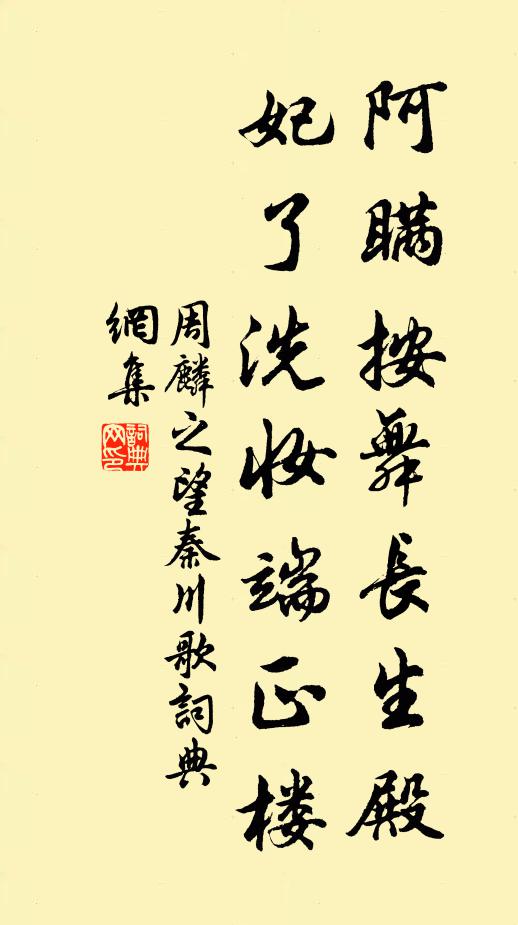 阿瞞按舞長生殿
妃了洗妝端正楼
周麟之望秦川歌詞典
網集
詞典网印